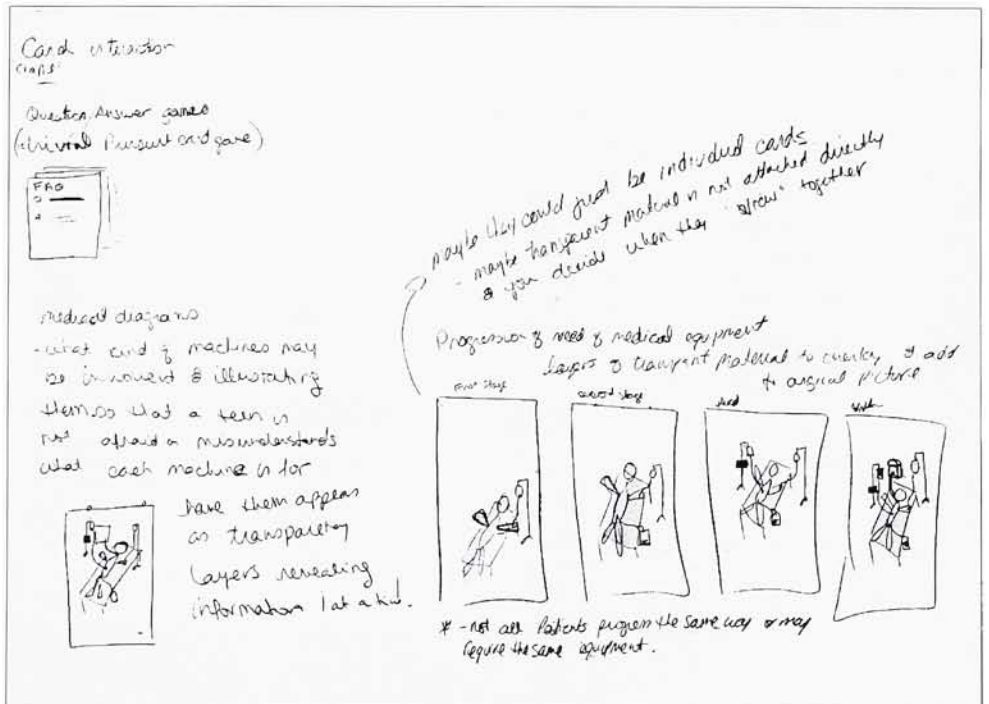 Card interaction
Question Answer games
(trivial Pursuit card game)
FAQ
medical diagrams
- what kind of machines may
be involved & illustrating
them so that a teen is
not afraid or misunderstands
what each machine is for
have them appear
as transparency
layers revealing
information 1 at a time.
maybe they could just be individual cards
- maybe transparent material is not attached directly
& you decide when they together
Progression of need of medical equipment
Layers of transparent material to overlay & add
to original picture
first stage
second stage
third
* - not all Patients progress the same way or may
require the same equipment.